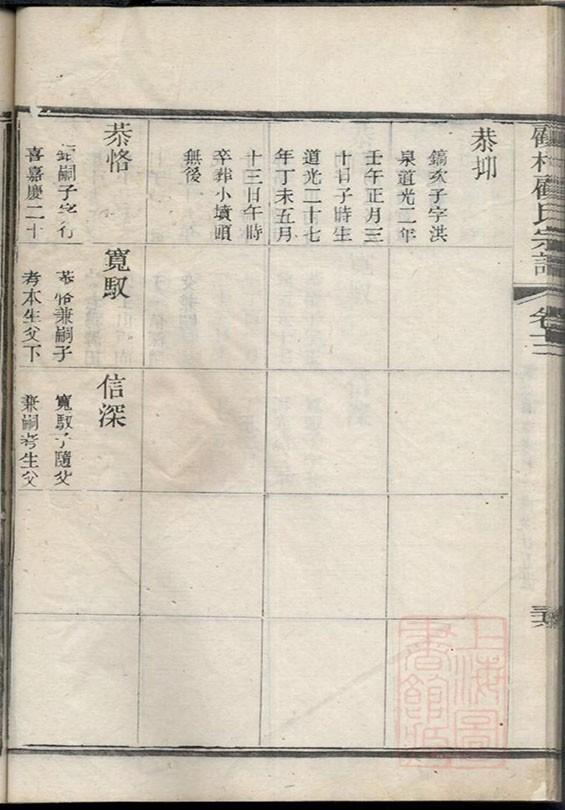 顧村顧氏宗譜
卷十二
恭抑
鎬次子字洪
泉道光二年
壬午正月三
十日子時生
道光二十七
年丁未五月
十三日午時
卒葬小墳頭
無後
恭恪
嗣子字行
喜嘉慶二十
寬馭
恭恪兼嗣子
考本生父下
信深
寬馭子隨父
兼嗣考生父
上海圖
書館藏